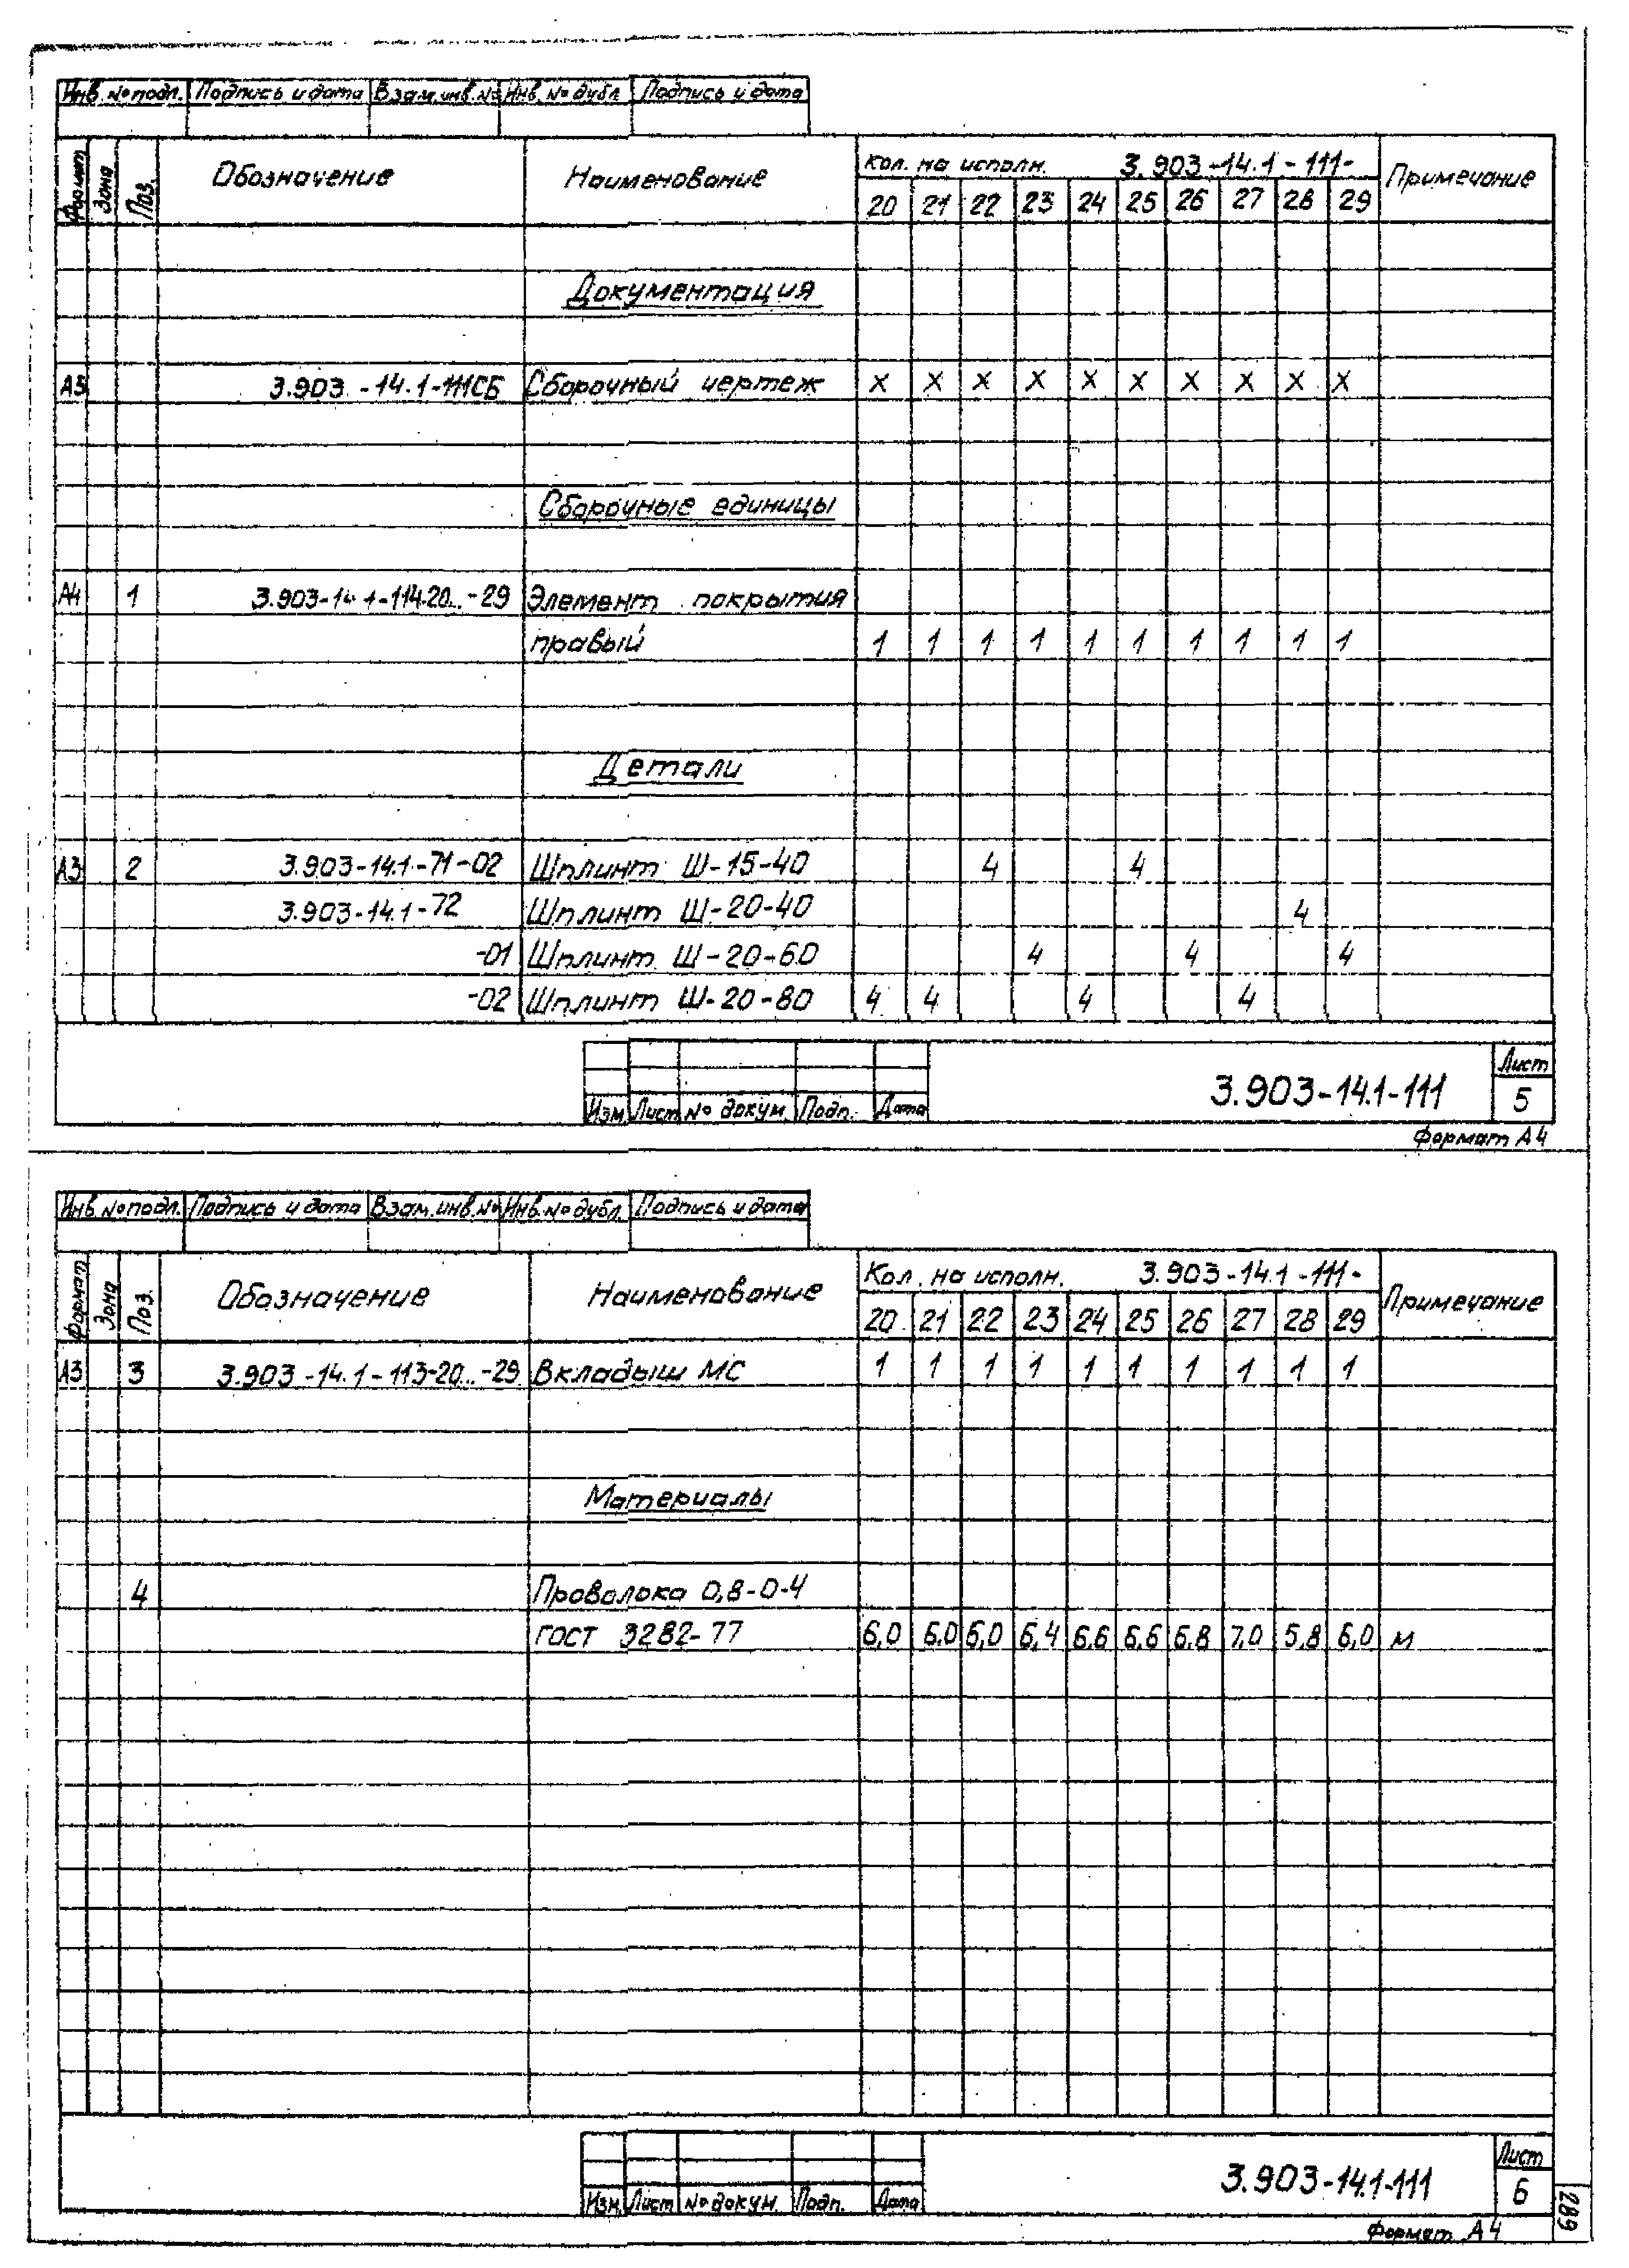 Инв. № подл. Подпись и дата Взам. инв. № Инв. № дубл. Подпись и дата
Формат Зона Поз. Обозначение Наименование Кол. на исполн. 3.903-14.1-111- Примечание
20 21 22 23 24 25 26 27 28 29
Документация
А3 3.903-14.1-111СБ Сборочный чертеж X X X X X X X X X X
Сборочные единицы
А4 1 3.903-14.1-114-20..-29 Элемент покрытия
правый 1 1 1 1 1 1 1 1 1 1
Детали
А3 2 3.903-14.1-71-02 Шплинт Ш-15-40 4 4
3.903-14.1-72 Шплинт Ш-20-40 4
-01 Шплинт Ш-20-60 4 4 4
-02 Шплинт Ш-20-80 4 4 4 4
Изм. Лист № докум. Подп. Дата 3.903-14.1-111 Лист 5
Формат А4
Инв. № подл. Подпись и дата Взам. инв. № Инв. № дубл. Подпись и дата
Формат Зона Поз. Обозначение Наименование Кол. на исполн. 3.903-14.1-111- Примечание
20 21 22 23 24 25 26 27 28 29
А3 3 3.903-14.1-113-20..-29 Вкладыш МС 1 1 1 1 1 1 1 1 1 1
Материалы
4 Проволока 0,8-0-4
ГОСТ 3282-77 6,0 6,0 6,0 6,4 6,6 6,6 6,8 7,0 5,8 6,0 м
Изм. Лист № докум. Подп. Дата 3.903-14.1-111 Лист 6
Формат А4
289